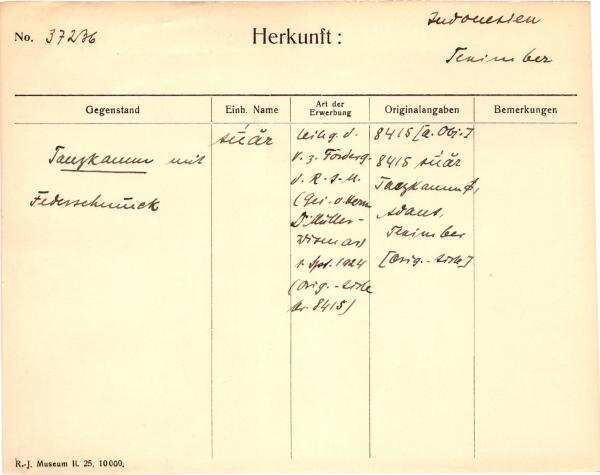 No. 37236
Herkunft:
Indonesien
Tenimber
Gegenstand
Einh. Name
Art der Erwerbung
Originalangaben
Bemerkungen
Tanzkamm mit
Federschmuck
súăr
Leihg. d.
V. z. Förderg.
d. R.-J.-M.
(Gei. v. Herrn
Dr. Müller-
Wismar
1. Sept. 1924
(Orig.-
Nr. 8415)
8415 [a. Obj.]
8415 súăr
Tanzkamm ♂,
Adaut,
Tenimber
[Orig.-
R.-J. Museum II. 25. 10 000.